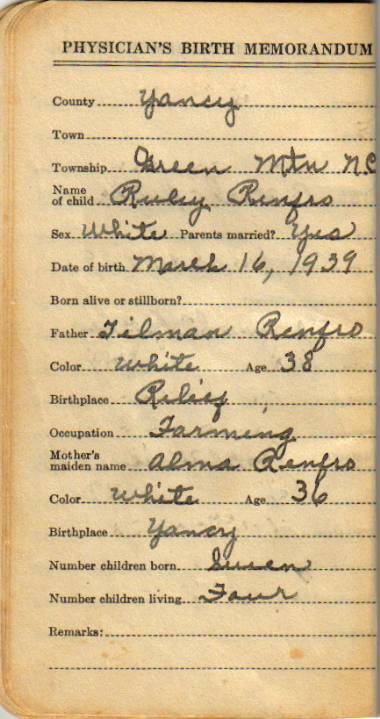 PHYSICIAN'S BIRTH MEMORANDUM
County Yancy
Town
Township Green Mtn NC
Name of child Ruby Renfro
Sex White Parents married? Yes
Date of birth March 16, 1939
Born alive or stillborn?
Father Tilman Renfro
Color White Age 38
Birthplace Relief
Occupation Farming
Mother's maiden name Alma Renfro
Color White Age 36
Birthplace Yancy
Number children born Seven
Number children living Four
Remarks: